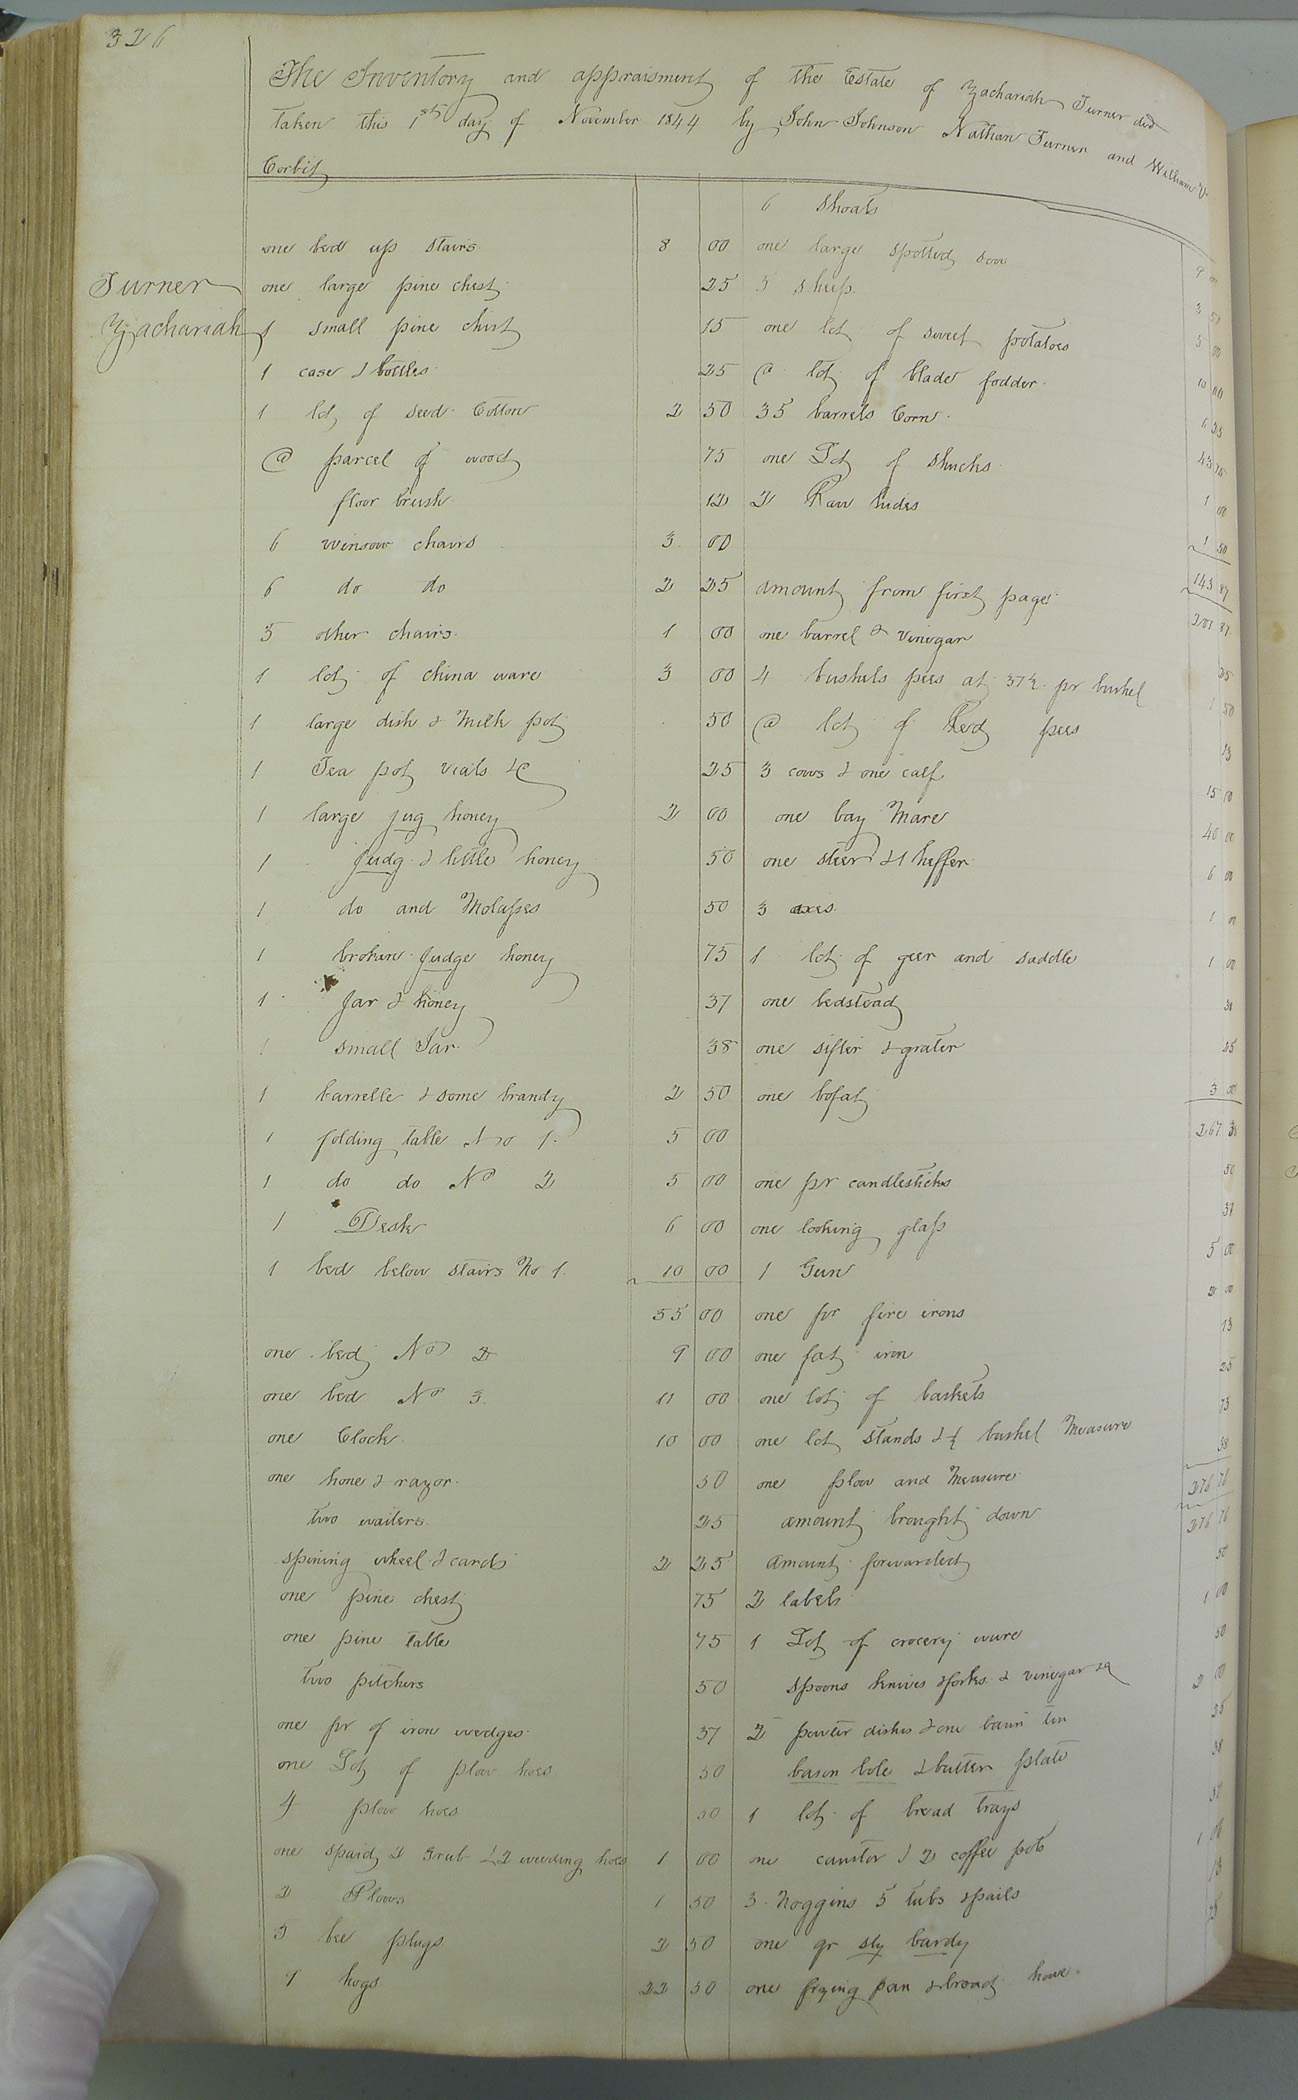 326
The Inventory and appraisment of the Estate of Zachariah Turner decd
Taken this 1st day of November 1844 by John Johnson Nathan Turner and William
Corbit
Turner
Zachariah
one bed up stairs 8 00
one large pine chest 25
1 small pine chist 15
1 case & bottles 25
1 lot of seed Cotton 2 50
@ parcel of wood 75
floor brush 12
6 winsow chairs 3 00
6 do do 2 25
5 other chairs 1 00
1 lot of china ware 3 00
1 large dish & Milk pot 50
1 Tea pot vials &c 25
1 large jug honey 2 00
1 judg & little honey 50
1 do and Molasses 50
1 broken judge honey 75
1 jar & honey 37
1 small Jar 38
1 barrelle & some brandy 2 50
1 folding table No 1 5 00
1 do do No 2 5 00
1 Desk 6 00
1 bed below stairs No 1 10 00
55 00
one bed No 2 9 00
one bed No 3 11 00
one Clock 10 00
one hone & razor 50
two waiters 25
spining wheel & cards 2 25
one pine chest 75
one pine table 75
two pitchers 50
one pr of iron wedges 37
one Lot of plow hoes 50
4 plow hoes 50
one spaid 2 Grub & 2 weeding hoes 1 00
2 Plows 1 50
5 bee plugs 2 50
9 hogs 22 50
6 shoats 9 00
one large spotted sow 3 50
5 sheep 5 00
one lot of sweet potatoes 10 00
@ lot of blade fodder 6 25
35 barrels Corn 43 75
one Lot of shucks 1 00
2 Raw hides 1 50
143 87
amount from first page 201 87
one barrel & vinegar 25
4 bushels pees at 37½ pr bushel 1 50
@ lot of Red pees 13
3 cows & one calf 15 00
one bay Mare 40 00
one steer & 1 heffer 6 00
3 axes 1 00
1 lot of geer and saddle 1 00
one bedstead
one sifter & grater 25
one bofat 3 00
267
one pr candlesticks 50
one looking glass 37
1 Gun 5 00
one pr fire irons 2 00
one fat iron 13
one lot of baskets 25
one lot stands & ½ bushel Measure 75
one plow and Measure 38
276 76
amount brought down 276 76
amount forwarded 50
2 labels 1 00
1 Lot of crocery ware 50
spoons knives & forks & vinegar &c 2 00
2 pewter dishes & one basin tin
bason bole & butter plate 38
1 lot of bread trays 37
one canitor & 2 coffee pots 1 00
3 Noggins 5 tubs & pails
one qr sly bardy 75
one frying pan & broad howe